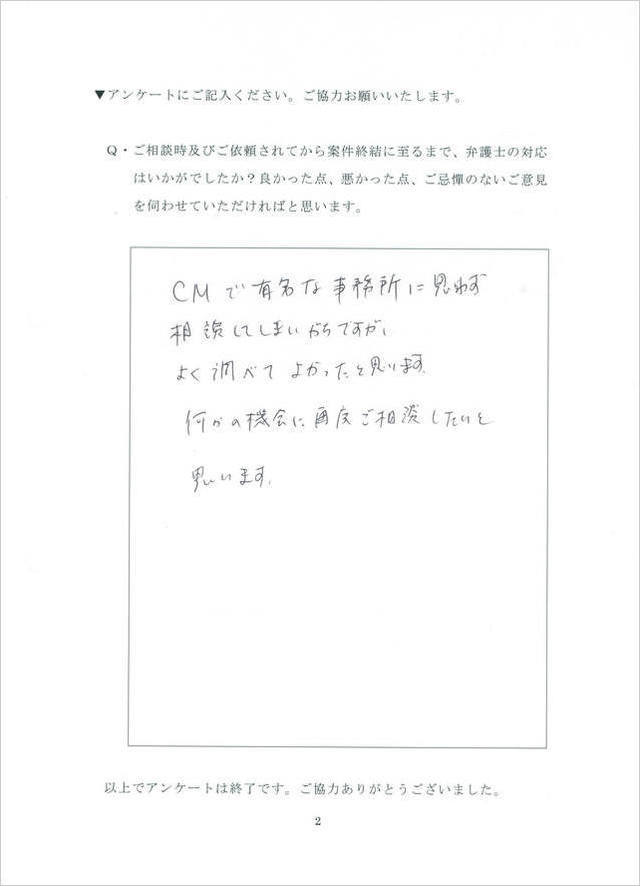 ▼アンケートにご記入ください。ご協力お願いいたします。
Q・ご相談時及びご依頼されてから案件終結に至るまで、弁護士の対応
はいかがでしたか？良かった点、悪かった点、ご忌憚のないご意見
を伺わせていただければと思います。
CMで有名な事務所に思わず
相談してしまいがちですが、
よく調べてよかったと思います。
何かの機会に再度ご相談したいと
思います。
以上でアンケートは終了です。ご協力ありがとうございました。
2